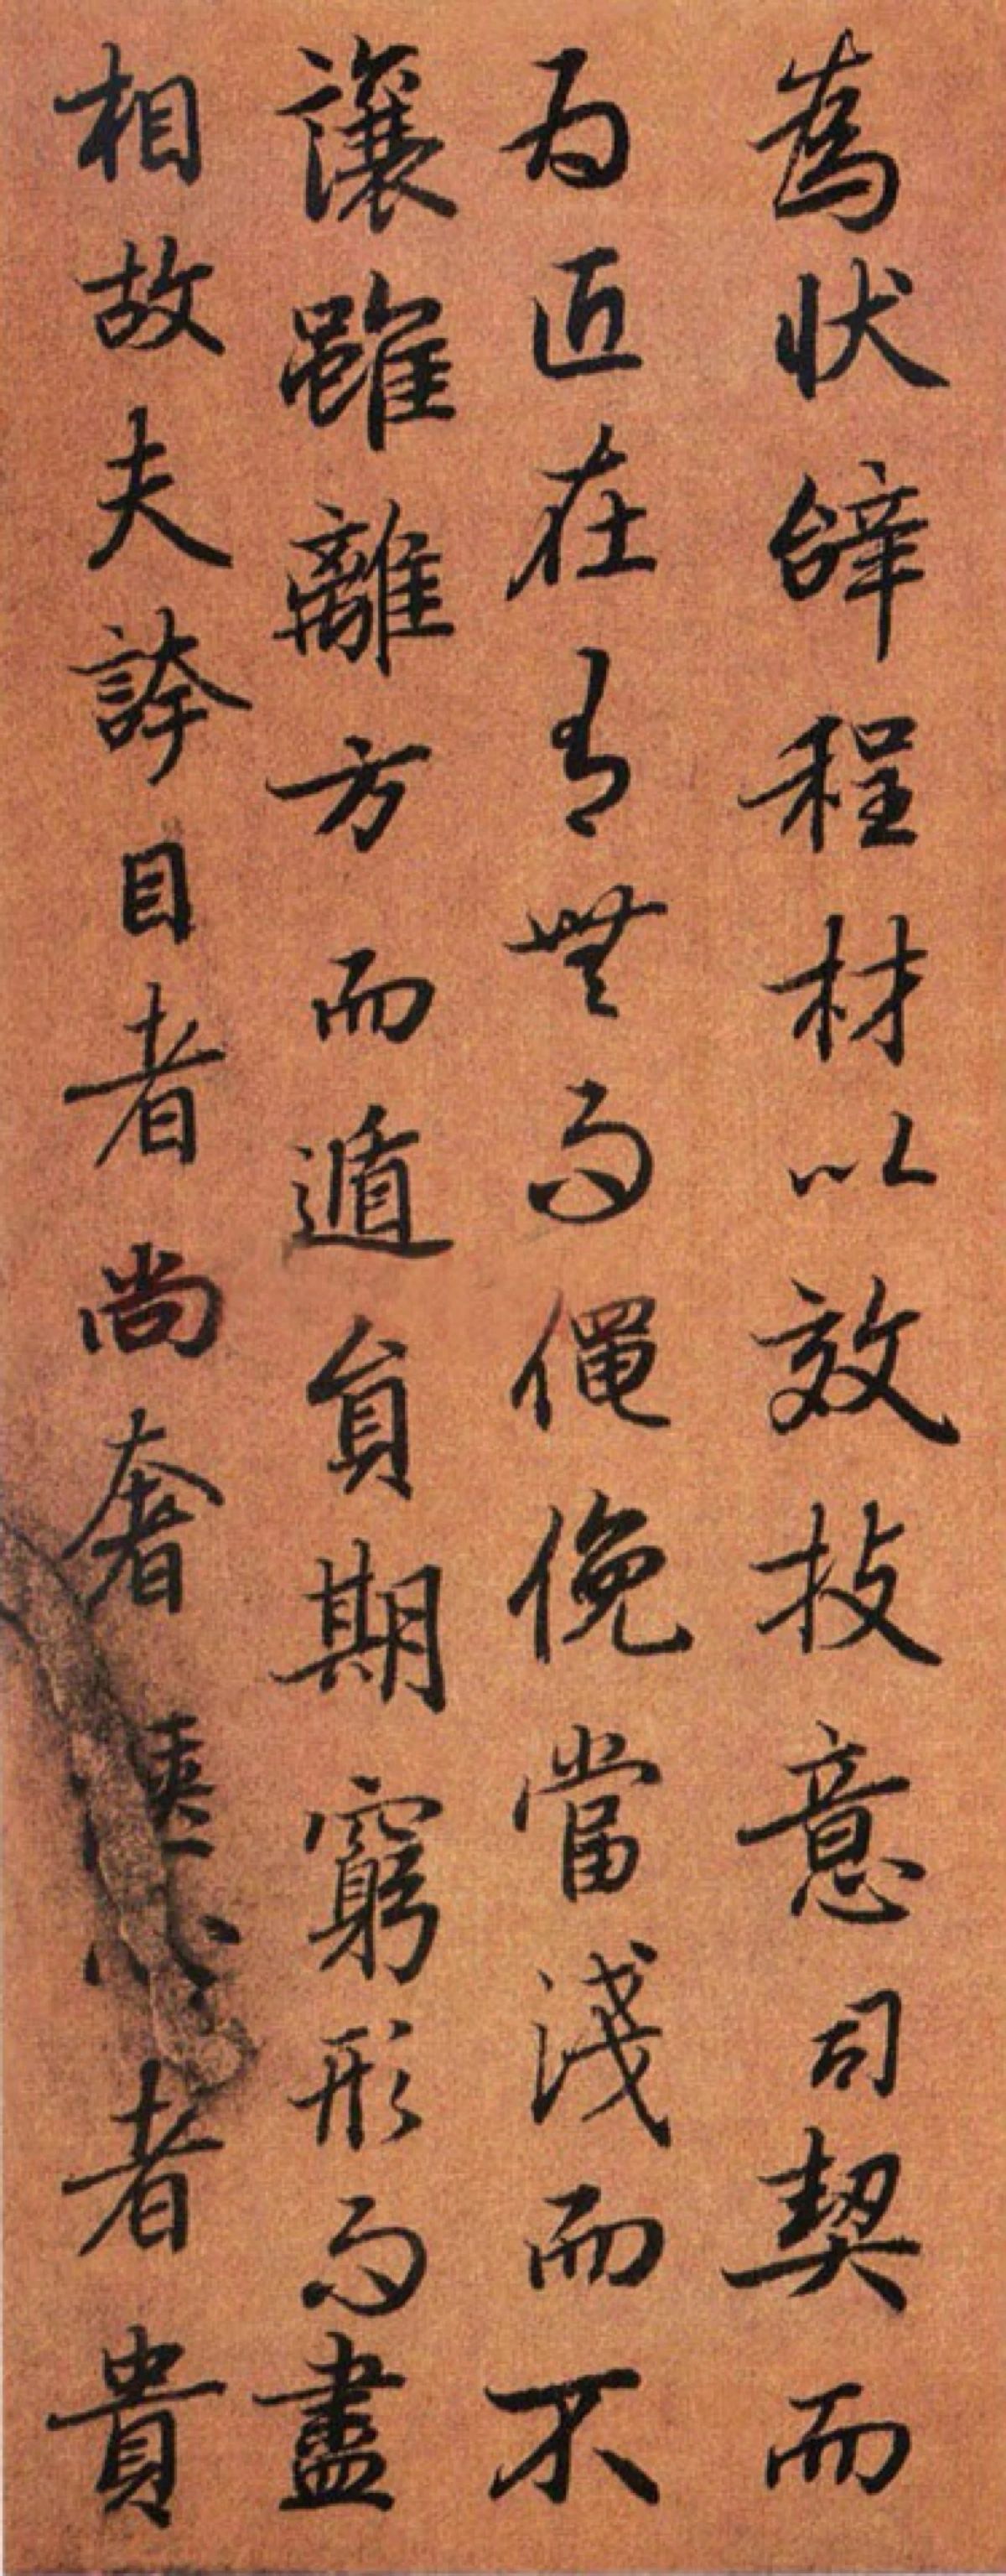 為狀辝程材以效技意司契而
為匠在有無而僶俛當淺而不
讓雖離方而遁貟期窮形而盡
相故夫誇目者尚奢愜心者貴